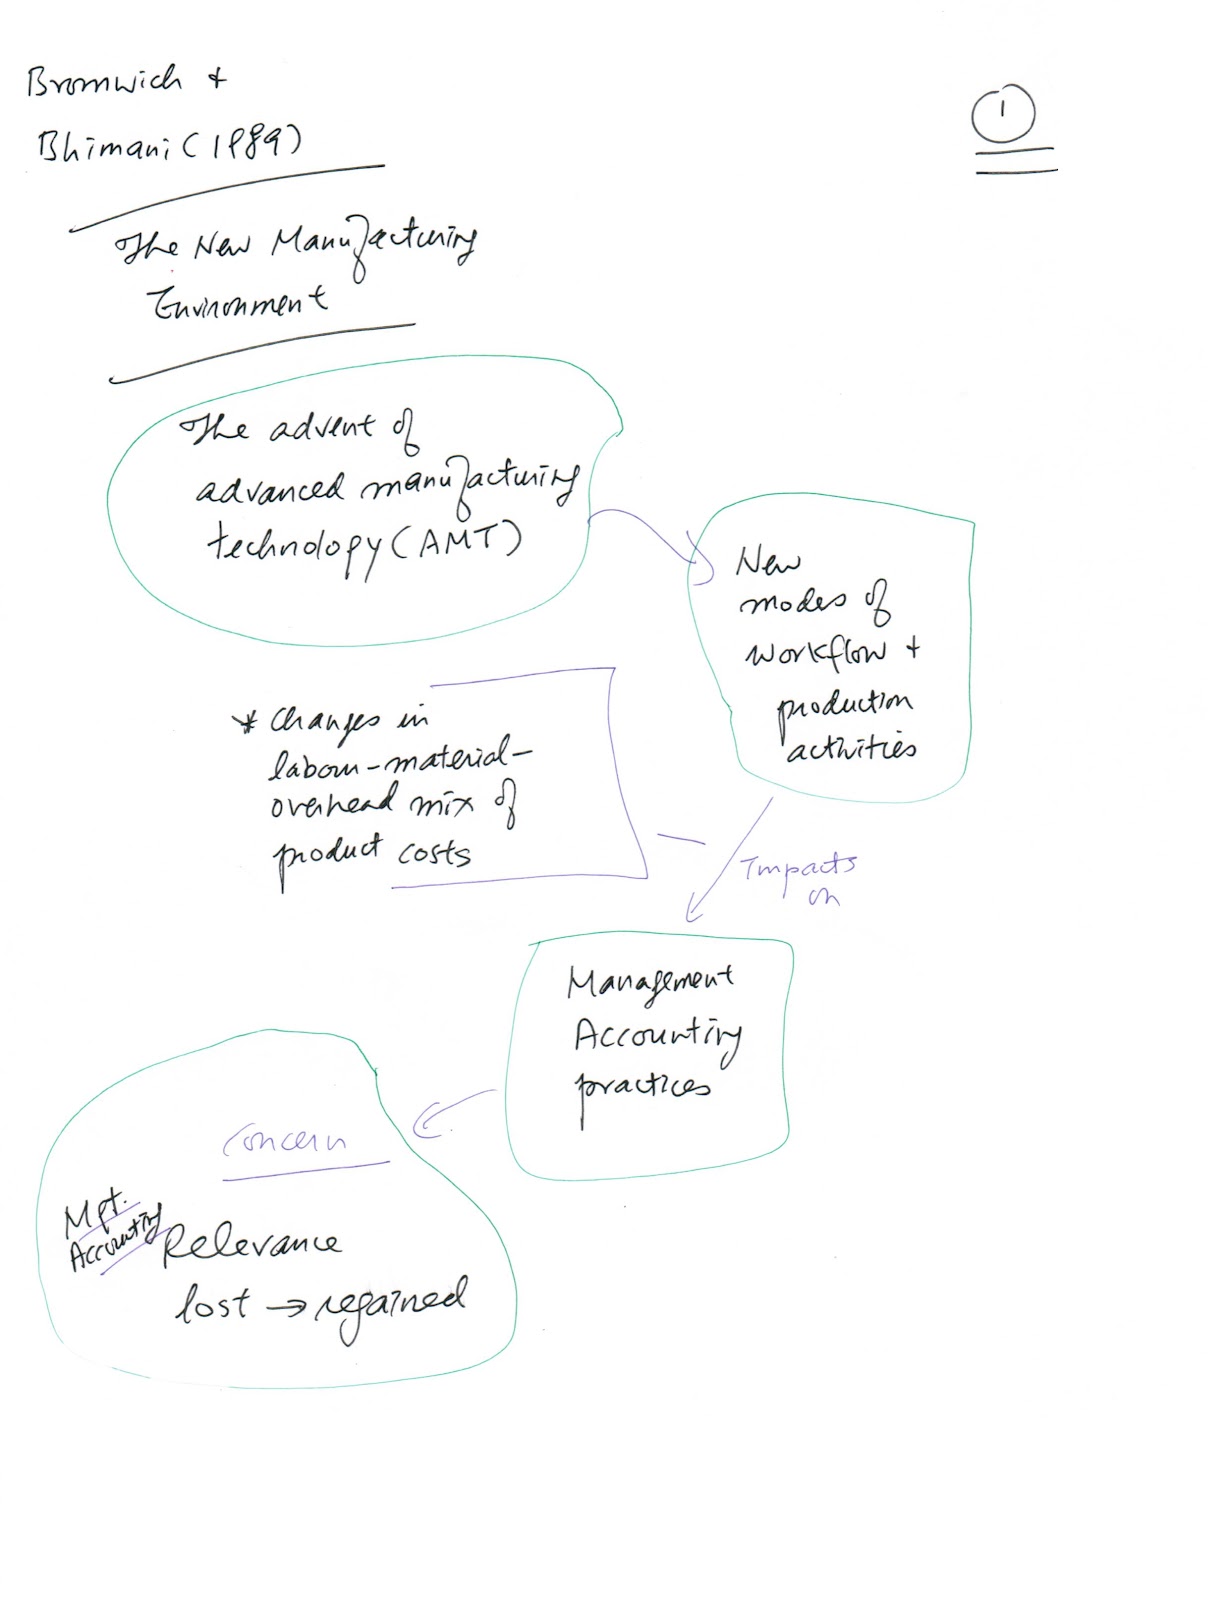 Bromwich +
Bhimani (1989)
1
The New Manufacturing
Environment
The advent of
advanced manufacturing
technology (AMT)
New
modes of
workflow +
production
activities
* Changes in
labour-material-
overhead mix of
product costs
Impacts
on
Management
Accounting
practices
Concern
Mgt.
Accounting
Relevance
lost → regained